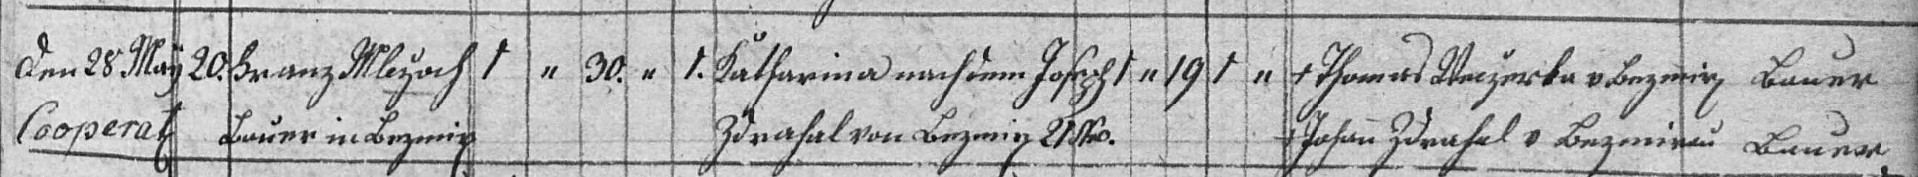 den 28 May 20. Franz Mlczoch 1 " 30. " 1. Katharina nach dem Joseph 1 " 19 1 " + Thomas Weczerka v Bezmir Bauer
Cooperat Bauer in Bezmir Zdrahal von Bezmir 21 + Johan Zdrahal v Bezmirau Bauer